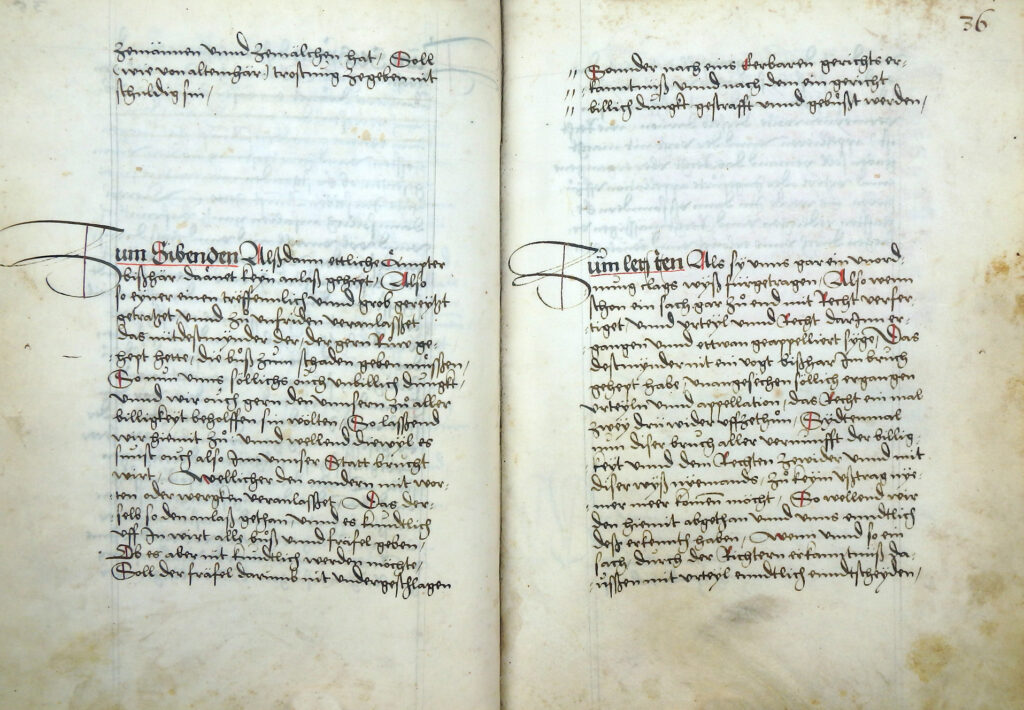 zemannen unnd zemälchen hat, Soll
(wie von altenhär) trostung zegeben nit
schuldig sin,
Zum Sibenden Alßdann ettliche Ämpter
bißhär da net keyn anlaß gehept, Also
so eyner einen träffennlich unnd grob gereytzt
getratzet unnd zu unfriden veranlasset
das nitdestmynder der, der gern Rüw ge-
hept hette, die büß zum schaden geben müssen,
So nun unns söllichs ouch unbillich dungkt,
unnd wir ouch gern den unnsern zu aller
billigkeyt beholffen sin wölten, So lassend
wir hiemit zu, unnd wellend diewyl es
sunst ouch also Inn unnser Statt brucht
wirt, Wellicher den anndern mit wor-
ten oder wergken veranlasset, Das der-
selb so den anlaß gethan, unnd es kundtlich
uff Inn wirt alle buß unnd fräfel geben,
Ob es aber nit kundtlich werden möchte,
Soll der fräfel darumb nit undergeschlagen
36
Sonnder nach eins Eerbaren gerichts er-
kanntnuß unnd nach dem ein gericht
billich dungkt gestrafft unnd gebüßt werden,
Zum letsten Als sy unns gar ein unord-
nung clags wyß fürgetragen, Also wenn
schon ein sach gar zu end mit Recht verfer-
tiget, unnd urteyl unnd Recht darInn er-
gangen unnd ettwan geappelliert syge, Das
destmynder nit ein vogt bißhar Im bruch
gehept habe, unangesechen söllich ergangen
urteyln unnd appellation, das Recht ein mal
zwey drü wider uffzethun, Sydtenmal
nun diser bruch aller vernunfft der billig-
keyt unnd dem Rechten zewider unnd mit
diser wyß nyemands, zu keyn ußtrag nye-
mer meer komen möcht, So wellend wir
den hiemit abgethan unnd unns enndtlich
deß erkennt haben, Wenn unnd so ein
sach, durch der Richtern erkanntnuß da-
ussen mit urteyl enndtlich enndtscheyden,